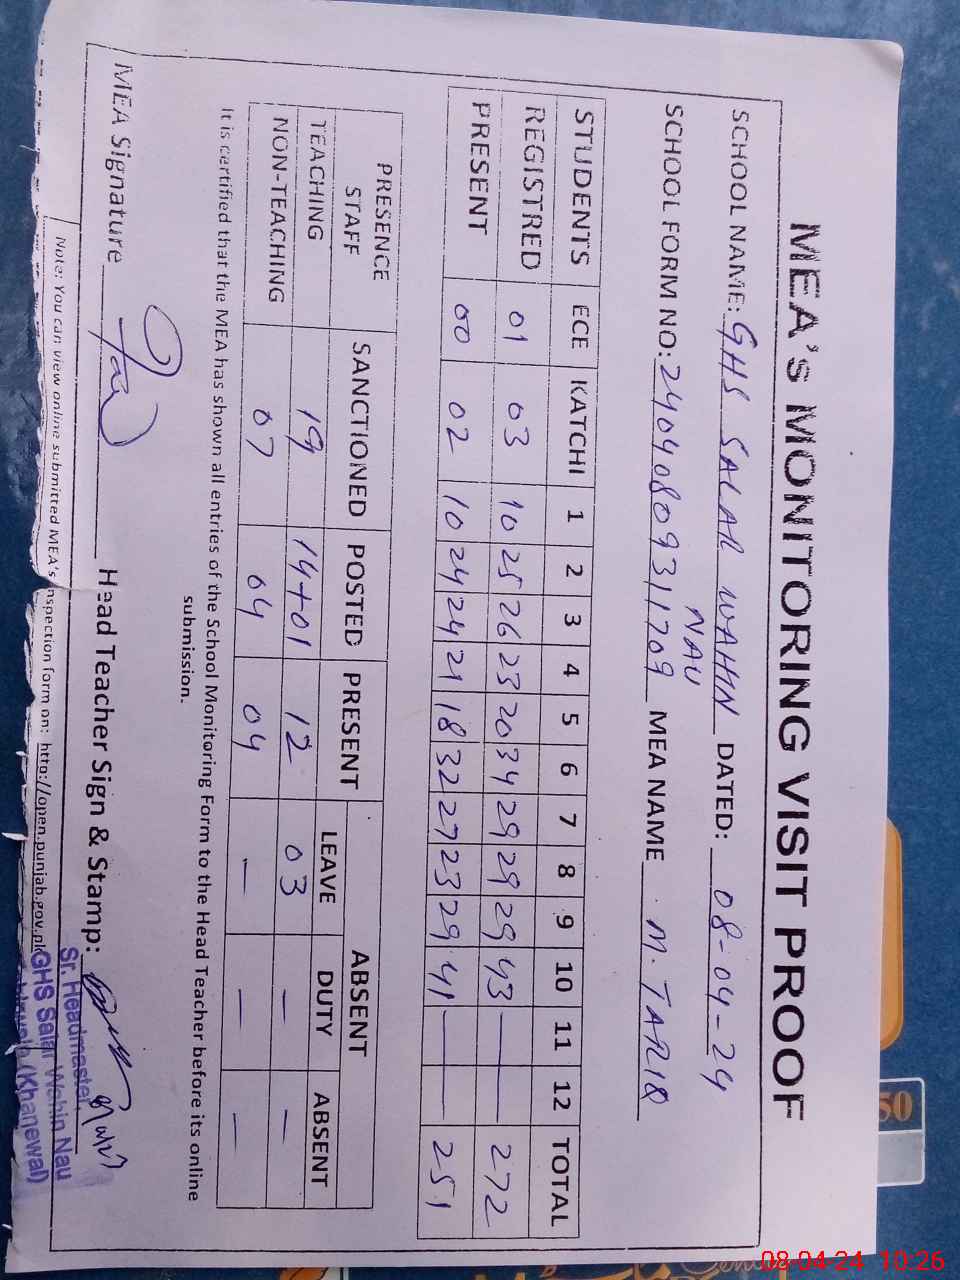 MEA's MONITORING VISIT PROOF
SCHOOL NAME: GHS SALAR WAHIN NAU DATED: 08-04-24
SCHOOL FORM NO: 24040809311709 MEA NAME M. TARIQ
STUDENTS ECE KATCHI 1 2 3 4 5 6 7 8 9 10 11 12 TOTAL
REGISTRED 01 03 10 25 26 23 20 34 29 29 29 43 — — 272
PRESENT 00 02 10 24 24 21 18 32 27 23 29 41 — — 251
PRESENCE STAFF SANCTIONED POSTED PRESENT ABSENT
LEAVE DUTY ABSENT
TEACHING 19 14+01 12 03 — —
NON-TEACHING 07 04 04 — — —
It is certified that the MEA has shown all entries of the School Monitoring Form to the Head Teacher before its online
submission.
MEA Signature Head Teacher Sign & Stamp:
Sr. Headmaster,
GHS Salar Wahin Nau
(Khanewal)
Note: You can view online submitted MEA's inspection form on: http://open.punjab.gov.pk
50
08-04-24 10:26